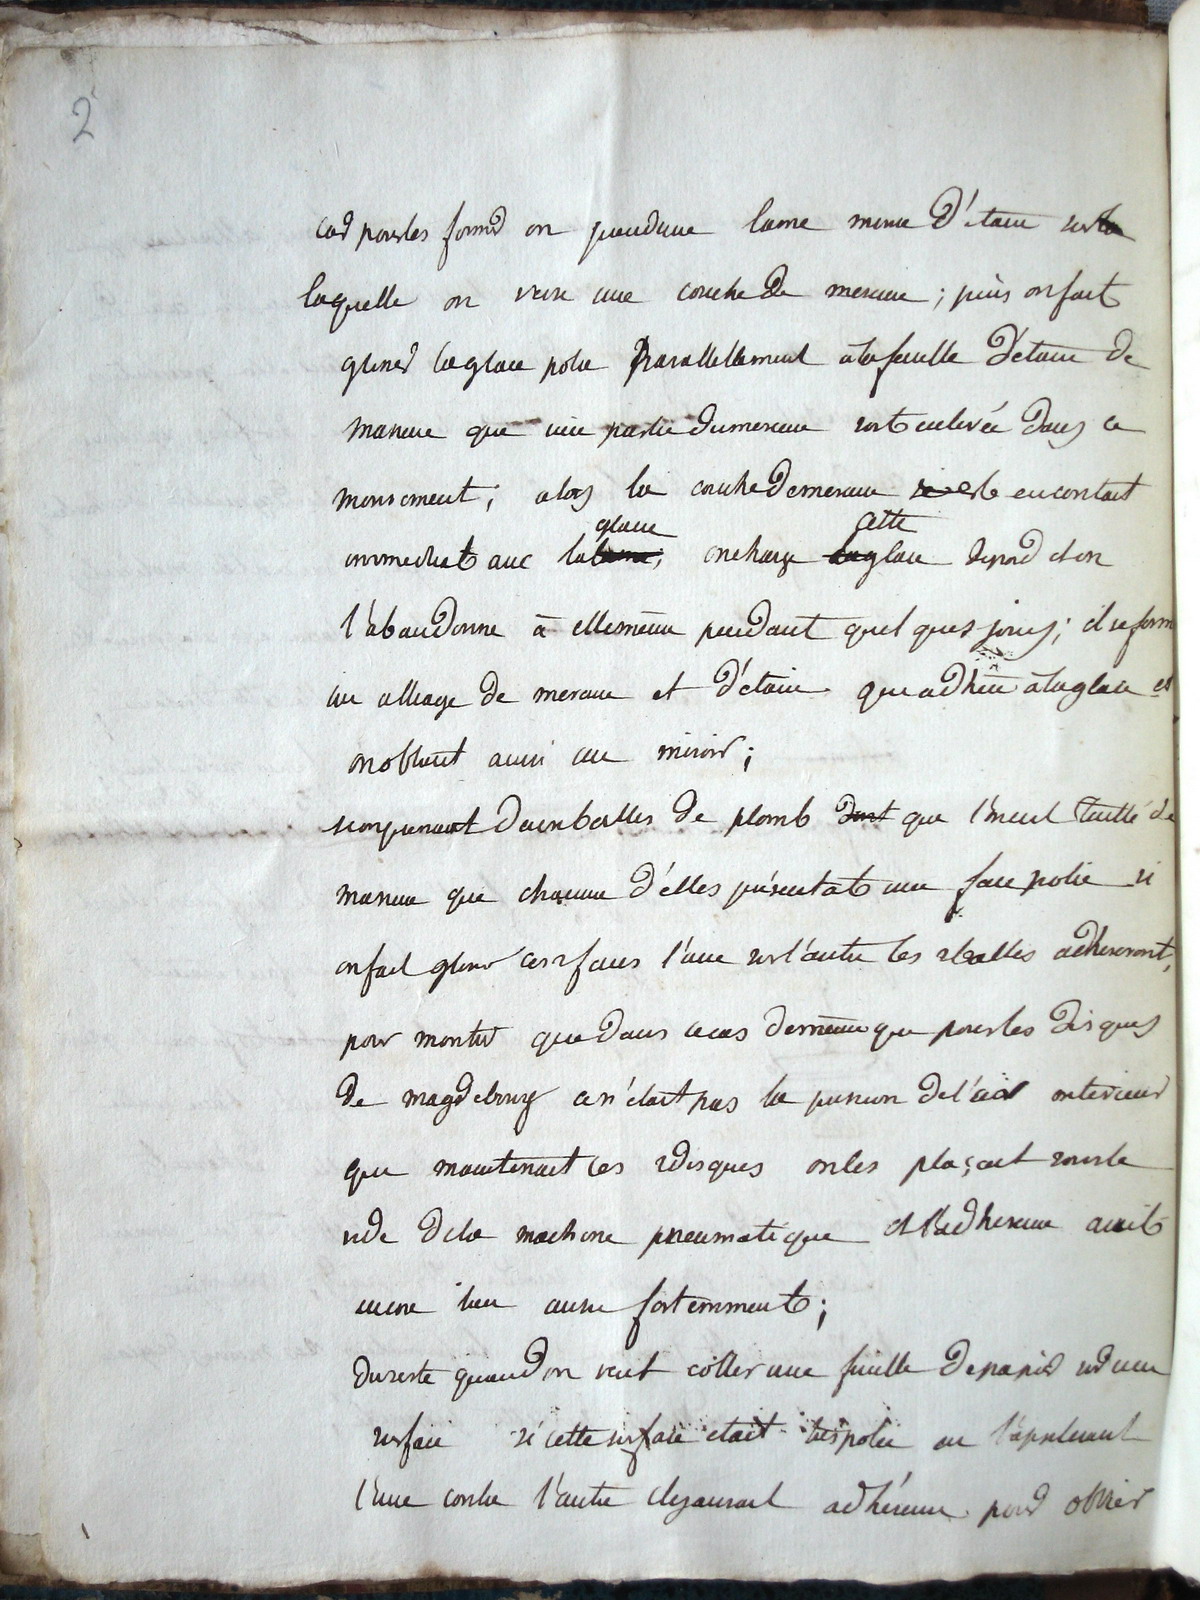 2
car pour les former on prend une lame mince d'étain sur la
laquelle on verse une couche de mercure ; puis on fait
glisser la glace polie parallellement a la feuille d'étain de
maniere que une partie du mercure soit enlevée dans ce
mouvement ; alors la couche de mercure reste en contact
glace cette
immediat avec la lame, on charge la glace de poid et on
l'abandonne à elle meme pendant quelques jours ; il se forme
un alliage de mercure et d'étain qui adhere à la glace et
on obtient ainsi un miroir ;
si on prenait deux balles de plomb dont que l'on eut taillé de
maniere que chacune d'elles présentat une face polie si
on fait glisser ces 2 faces l'une sur l'autre les 2 balles adhereront,
pour montrer que dans ce cas de meme que pour les disques
de magdebourg ce n'étoit pas la pression de l'air exterieur
qui maintenait les 2 disques on les plaçait sous le
vide de la machine pneumatique et l'adherence avait
encore lieu aussi fortemment ;
du reste quand on veut coller une feuille de papier sur une
surface si cette surface etait tres polie en l'appliquant
l'une contre l'autre il y aurait adhérence pour obvier